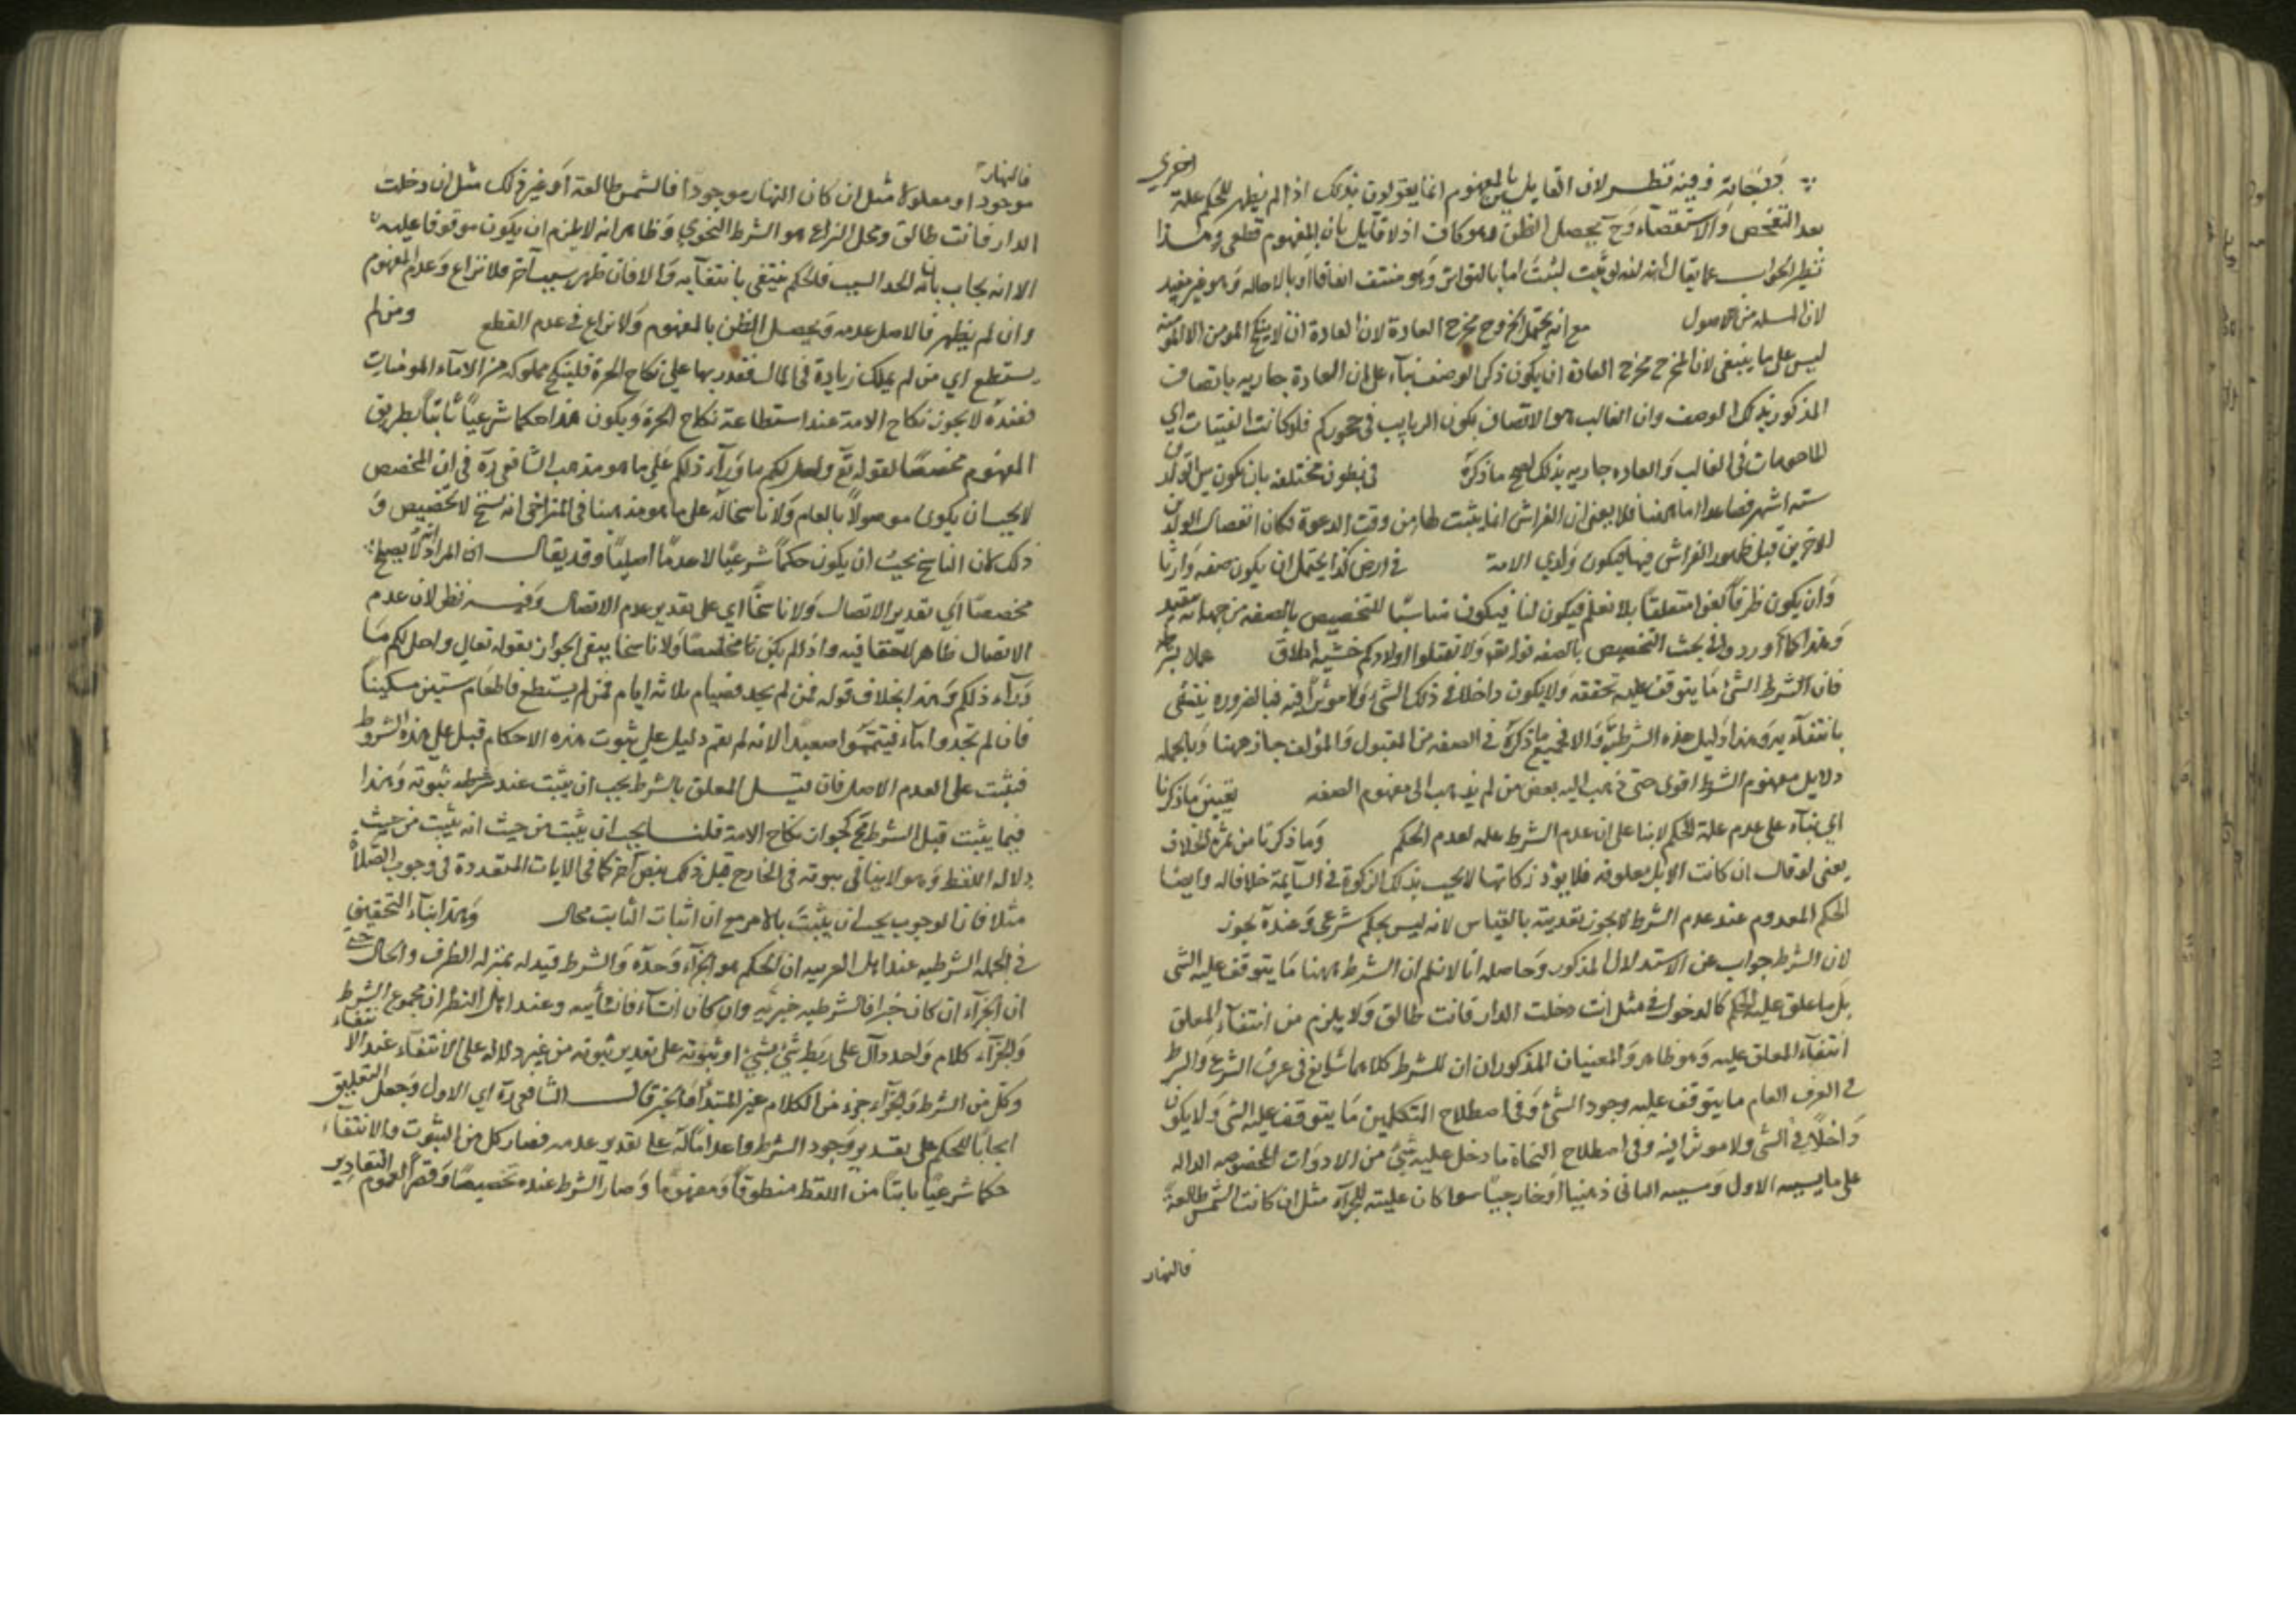 وفيه نظر لان القايلين بالمفهوم انما يقولون بذلك اذا لم يظهر للحكم علة اخرى
بعد التفحص والاستقصاء وح يحصل الظن وهو كاف اذ لا قايل بان المفهوم قطعى وهذا
نظير الجواب عما يقال انه لو ثبت لثبت اما بالتواتر وهو منتف اتفاقا او بالاحاد وهو غير مفيد
لان المسئله من الاصول مع انه يحتمل الخروج مخرج العادة لان العادة ان لا ينكح المومن الا المومنة
ليس على ما ينبغى لان المخرج مخرج العادة ان يكون ذكر الوصف بناء على ان العادة جاريه باتصاف
المذكور بذلك الوصف وان الغالب هو الاتصاف بكون الربايب فى حجوركم فلو كانت الفتيات اي
المومنات فى الغالب والعاده جاريه بذلك لصح ما ذكره فى بطون مختلفه بان يكون بين الولدين
سته اشهر فصاعدا اما ههنا فلا يعنى ان الفراش انما يثبت لها من وقت الدعوة فكان انفصال الولدين
الاخرين قبل ظهور الفراش فيها فيكون ولدي الامة فى ارض كذا يحتمل ان يكون صفه وارثا
وان يكون ظرفا لغوا متعلقا بلا نعلم فيكون لنا فيكون مناسبا للتخصيص بالصفه من جهة انه قيد
وهذا كما اوردوا فى بحث التخصيص بالصفه قوله تعالى ولا تقتلوا اولادكم خشية املاق عملا بشرطه
فان الشرط الشئ ما يتوقف عليه تحققه ولا يكون داخلا فى ذلك الشئ ولا موثرا فيه فبالضروره ينتفى
بانتفآئه وهذا دليل هذه الشرطية والا فجميع ما ذكره فى الصفه من المقبول والمزيف جاز ههنا وبالجمله
دلايل مفهوم الشرط اقوى حتى ذهب اليه بعض من لم يذهب الى مفهوم الصفه بعين ما ذكرنا
اي بناء على عدم علة الحكم لا بنا على ان عدم الشرط علة لعدم الحكم وما ذكرنا من ثمرة الخلاف
يعنى لو قال ان كانت الابل معلوفه فلا يود زكاتها لا يجب بذلك الزكوة فى السآيمة خلافا له وايضا
الحكم المعدوم عند عدم الشرط لا يجوز تعديته بالقياس لانه ليس بحكم شرعى وعنده يجوز
لان الشرط جواب عن الاستدلال المذكور وحاصله انا لا نسلم ان الشرط ههنا ما يتوقف عليه الشى
بل ما علق عليه الحكم كالدخول فى مثل ان دخلت الدار فانت طالق ولا يلزم من انتفآء المعلق
انتفآء المعلق عليه وهو ظاهر والمعنيان المذكوران للشرط كلاهما شايع فى عرف الشرع والشرط
فى العرف العام ما يتوقف عليه وجود الشئ وفى اصطلاح المتكلمين ما يتوقف عليه الشى ولا يكون
داخلا فى الشى ولا موثرا فيه وفى اصطلاح النحاة ما دخل عليه شئ من الادوات المخصوصه الداله
على سببيه الاول ومسببيه الثانى ذهنيا او خارجيا سوا كان علة للجزاء مثل ان كانت الشمس طالعة
فالنهار
فالنهار
موجود او معلولا مثل ان كان النهار موجودا فالشمس طالعة او غير ذلك مثل ان دخلت
الدار فانت طالق ومحل النزاع هو الشرط النحوي وظاهر انه لا يلزم ان يكون موقوفا عليه
الا انه يجاب بانه ان اتحد السبب فالحكم ينتفى بانتفآيه والا فان ظهر سبب آخر فلا نزاع وعدم المفهوم
وان لم يظهر فالاصل عدمه ويحصل الظن بالمفهوم ولا نزاع فى عدم القطع ومن لم
يستطع اي من لم يملك زيادة فى المال فقدر بها على نكاح الحرة فلينكح مملوكة من الامآء المومنات
فعنده لا يجوز نكاح الامة عند استطاعة نكاح الحرة ويكون هذا حكما شرعيا ثابتا بطريق
المفهوم مخصصا لقوله تع واحل لكم ما ورآء ذلكم على ما هو مذهب الشافعى ره فى ان المخصص
لا يجب ان يكون موصولا بالعام ولا ناسخا له على ما هو مذهبنا فى المتراخى انه نسخ لا تخصيص و
ذلك لان الناسخ يجب ان يكون حكما شرعيا لا عدما اصليا وقد يقال ان المراد انه لا يصلح
مخصصا اي بتقدير الاتصال ولا ناسخا اي على تقدير عدم الاتصال وفيه نظر لان عدم
الاتصال ظاهر لا خفا فيه واذا لم يكن مخصصا ولا ناسخا يبقى الجواز بقوله تعالى واحل لكم ما
ورآء ذلكم وهذا بخلاف قوله فمن لم يجد فصيام ثلاثة ايام فمن لم يستطع فاطعام ستين مسكينا
فان لم تجدوا مآء فتيمموا صعيدا لانه لم يقم دليل على ثبوت هذه الاحكام قبل هذه الشروط
فبقيت على العدم الاصلى فان قيل المعلق بالشرط يجب ان يثبت عند ثبوته وهذا
فيما يثبت قبل الشرط مح كجواز نكاح الامة قلنا يجب ان يثبت من حيث انه يثبت من حيث
دلاله اللفظ وهو لا ينافى ثبوته فى الخارج قبل ذلك بنص آخر كما فى الايات المتعددة فى وجوب الصلاة
مثلا فان الوجوب يجب ان يثبت بالامر مع ان اثبات الثابت محال وهذا بناء التحقيق
فى الجمله الشرطيه عند اهل العربيه ان الحكم هو الجزآء وحده والشرط قيد له بمنزله الظرف والحال حتى
ان الجزآء ان كان خبرا فالشرطيه خبريه وان كان انشآء فانشآئيه وعند اهل النظر ان مجموع الشرط
والجزآء كلام واحد دآل على ربط شئ بشئ او ثبوته على تقدير ثبوته من غير دلاله على الانتفآء عند الانتفآء
وكل من الشرط والجزآء جزء من الكلام غير المبتدأ والخبر قال الشافعى ره اي الاول وجعل التعليق
ايجابا للحكم على تقدير وجود الشرط واعداما له على تقدير عدمه فصار كل من الثبوت والانتفآء
حكما شرعيا ثابتا من اللفظ منطوقا ومفهوما وصار الشرط عنده تخصيصا وقصر العموم التقادير